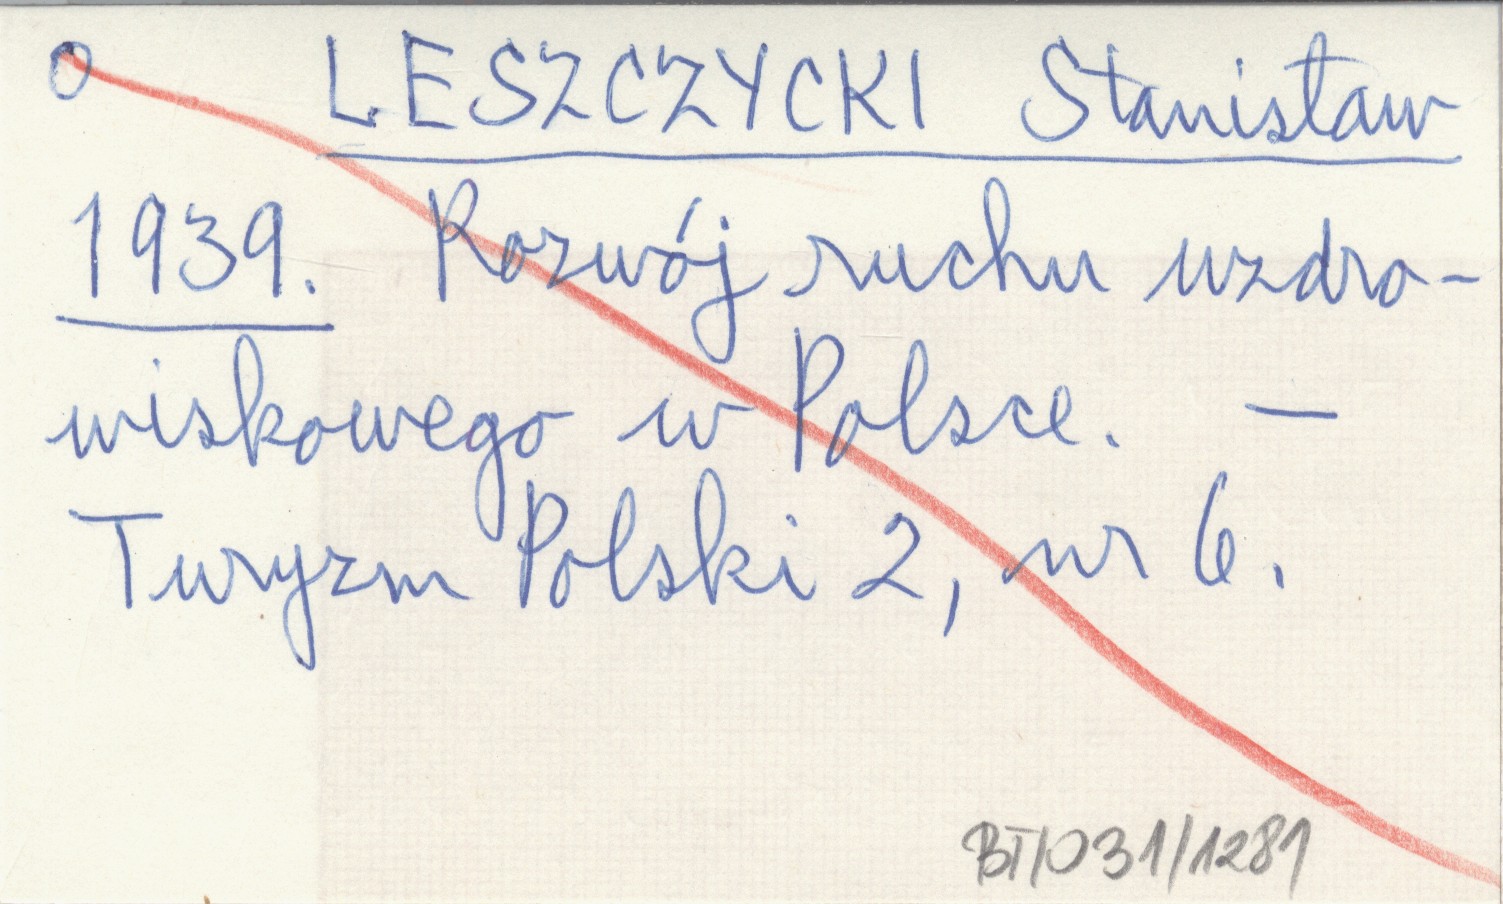 O LESZCZYCKI Stanisław
1939. Rozwój ruchu uzdro-
wiskowego w Polsce. —
Turyzm Polski 2, nr 6.
BT/031/1281